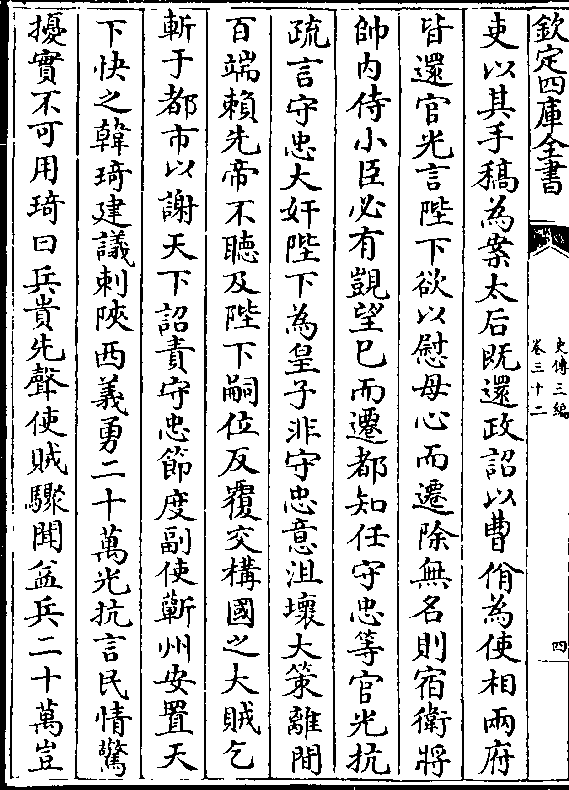 欽定四庫全書
史傳三編
卷三十二
四
吏以其手稿為案太后既還政詔以曹佾為使相兩府
皆還官光言陛下欲以慰母心而遷除無名則宿衛將
帥内侍小臣必有覬望已而遷都知任守忠等官光抗
疏言守忠大奸陛下為皇子非守忠意沮壞大策離間
百端賴先帝不聽及陛下嗣位反覆交構國之大賊乞
斬于都市以謝天下詔責守忠節度副使蘄州安置天
下快之韓琦建議刺陜西義勇二十萬光抗言民情驚
擾實不可用琦曰兵貴先聲使賊驟聞益兵二十萬豈